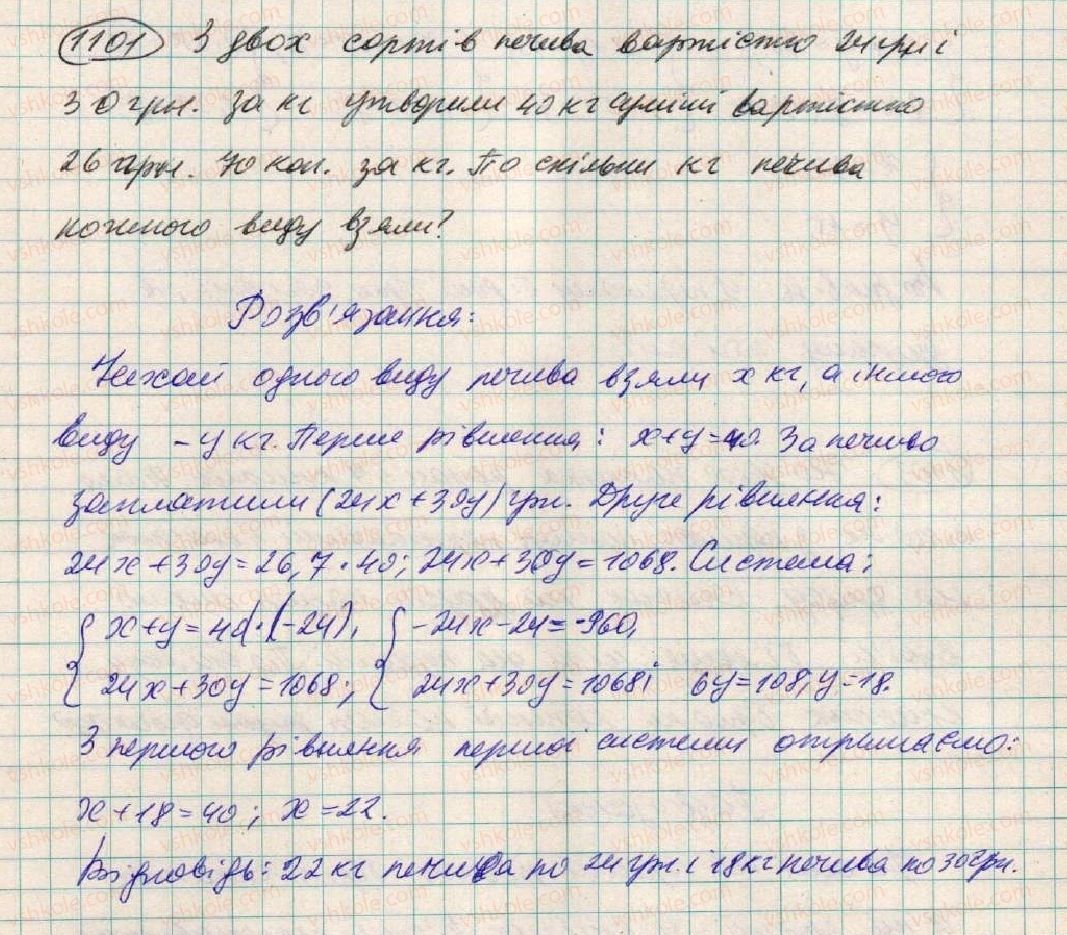 1101 З двох сортів печива вартістю 24 грн і
30 грн. за кг утворили 40 кг суміші вартістю
26 грн. 70 коп. за кг. По скільки кг печива
кожного виду взяли?
Розв'язання:
Нехай одного виду печива взяли x кг, а іншого
виду – y кг. Перше рівняння: x+y=40. За печиво
заплатили (24x+30y) грн. Друге рівняння:
24x+30y=26,7·40; 24x+30y=1068. Система:
{ x+y=40|·(-24), { -24x-24=-960,
24x+30y=1068; 24x+30y=1068; 6y=108, y=18.
З першого рівняння першої системи отримаємо:
x+18=40; x=22.
Відповідь: 22 кг печива по 24 грн. і 18 кг печива по 30 грн.
vshkole.com